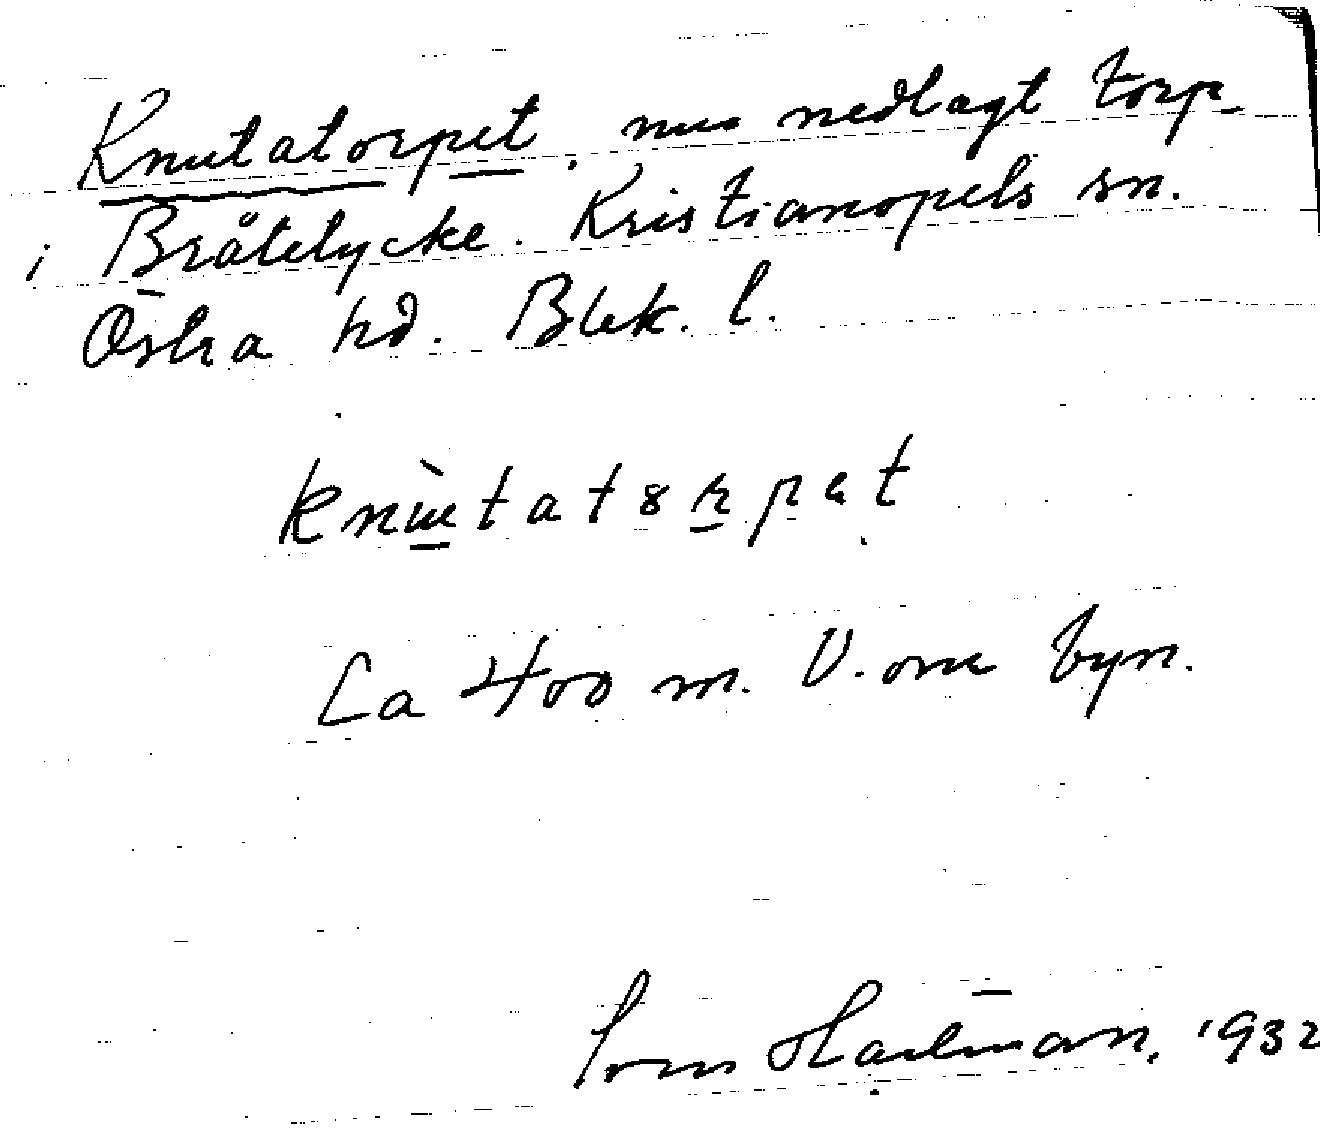 Knutatorpet, nu nedlagt torp
i Bråtelycke. Kristianopels sn.
Östra hd. Blek. l.
knùtatȣrpət
Ca 400 m. V. om byn.
Hartman, 1932